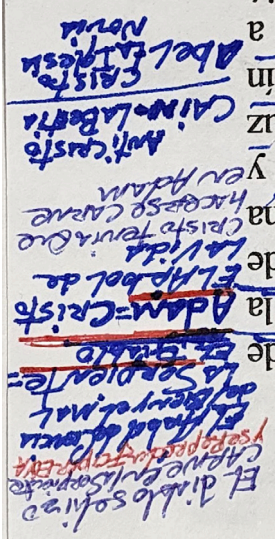 El diablo se hizo
CARNE en la serpiente
y se reprodujo por EVA
El Arbol del
del Bien y el mal
LA SERPIENTE =
EL DIABLO
ADAM = CRISTO
EL ARBOL de
LA VIDA
CRISTO TENIA QUE
HACERSE CARNE
EN ADAM
ANTICRISTO
CAIN = LA BESTIA
CRISTO
ABEL LA IGLESIA
NOVIA
de
la
de
na
y
uz
ín
a